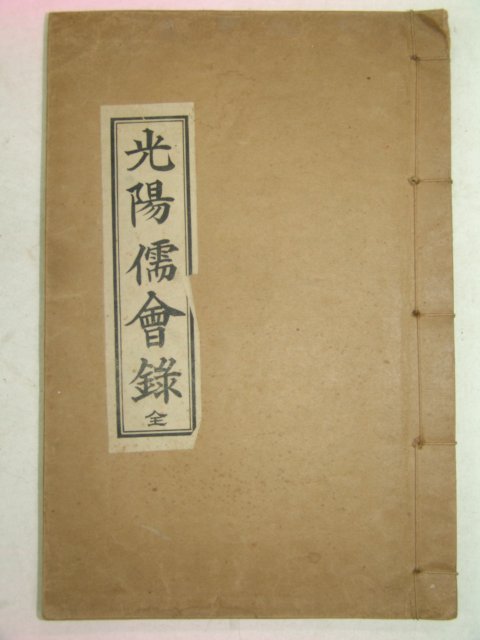 光陽儒會錄全